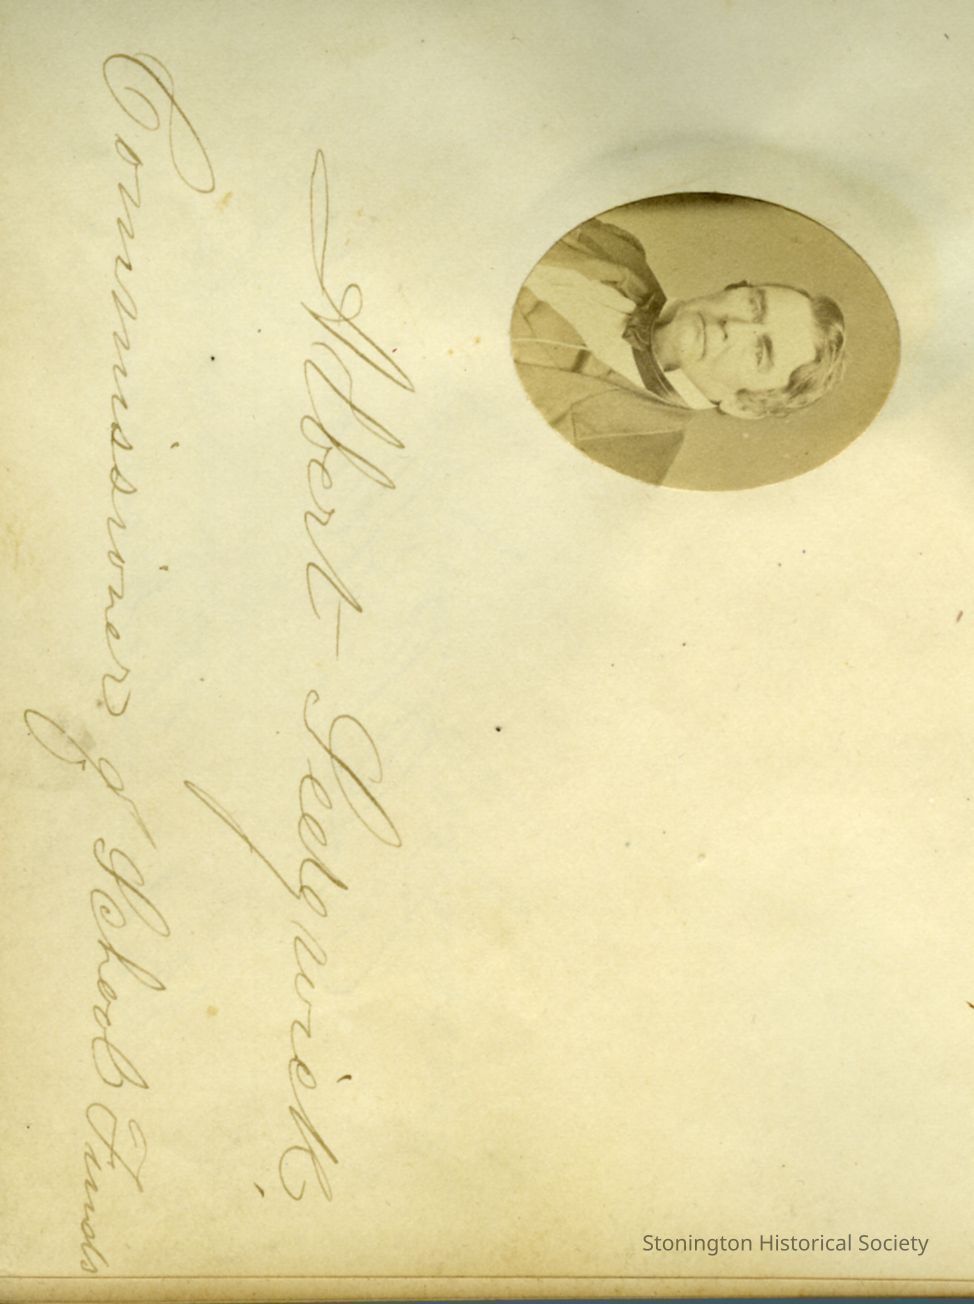 Albert Sedgwick.
Commissioner of School Funds
Stonington Historical Society